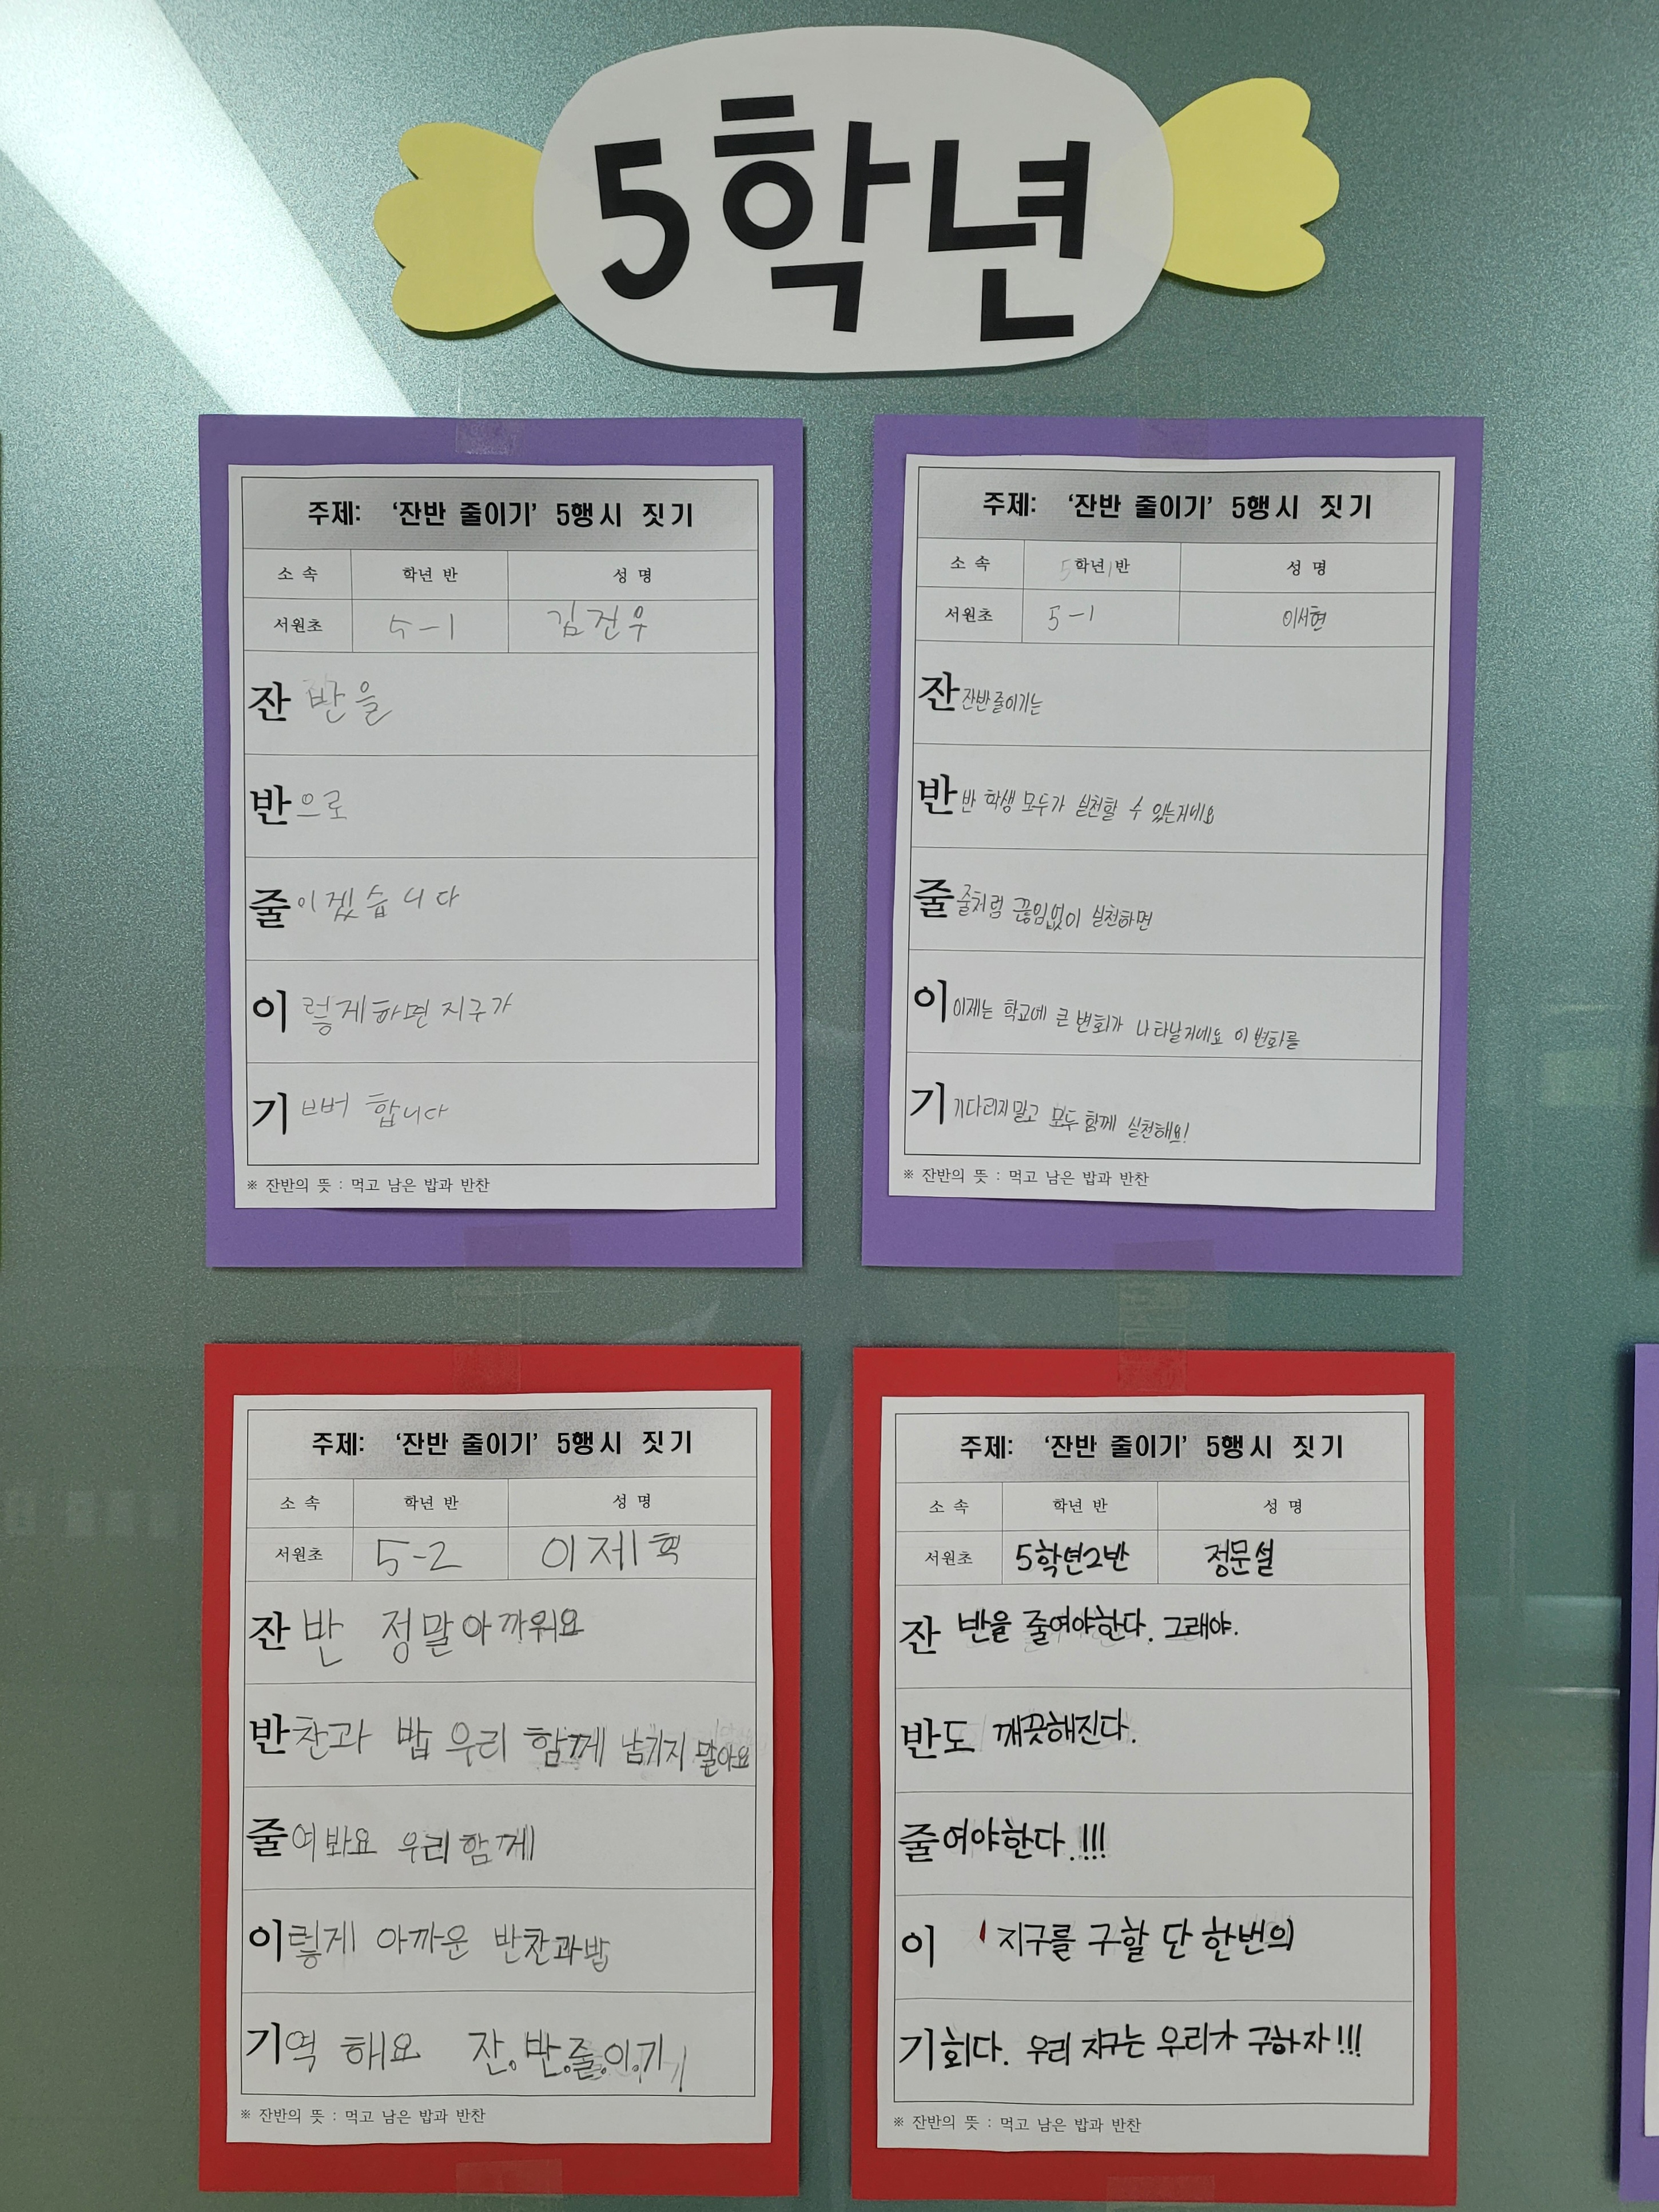 5학년
주제: ‘잔반 줄이기’ 5행시 짓기
소 속 학년 반 성 명
서원초 5-1 김진우
잔 반을
반으로
줄이겠습니다
이렇게하면 지구가
기쁘버 합니다
※ 잔반의 뜻 : 먹고 남은 밥과 반찬
주제: ‘잔반 줄이기’ 5행시 짓기
소 속 5학년 1반 성 명
서원초 5-1 이서현
잔 잔반줄이기는
반 반 학생 모두가 실천할 수 있는거에요
줄 줄처럼 끊임없이 실천하면
이 이제는 학교에 큰 변화가 나타날거에요 이 변화를
기 기다리지말고 모두 함께 실천해요!
※ 잔반의 뜻 : 먹고 남은 밥과 반찬
주제: ‘잔반 줄이기’ 5행시 짓기
소 속 학년 반 성 명
서원초 5-2 이제혁
잔반 정말아까워요
반찬과 밥 우리 함께 남기지 말아요
줄여봐요 우리함께
이렇게 아까운 반찬과밥
기억 해요 잔.반.줄.이.기
※ 잔반의 뜻 : 먹고 남은 밥과 반찬
주제: ‘잔반 줄이기’ 5행시 짓기
소 속 학년 반 성 명
서원초 5학년2반 정문설
잔 반을 줄여야한다. 그래야.
반도 깨끗해진다.
줄여야한다.!!!
이 지구를 구할 단 한번의
기회다. 우리 지구는 우리가 구하자!!!
※ 잔반의 뜻 : 먹고 남은 밥과 반찬